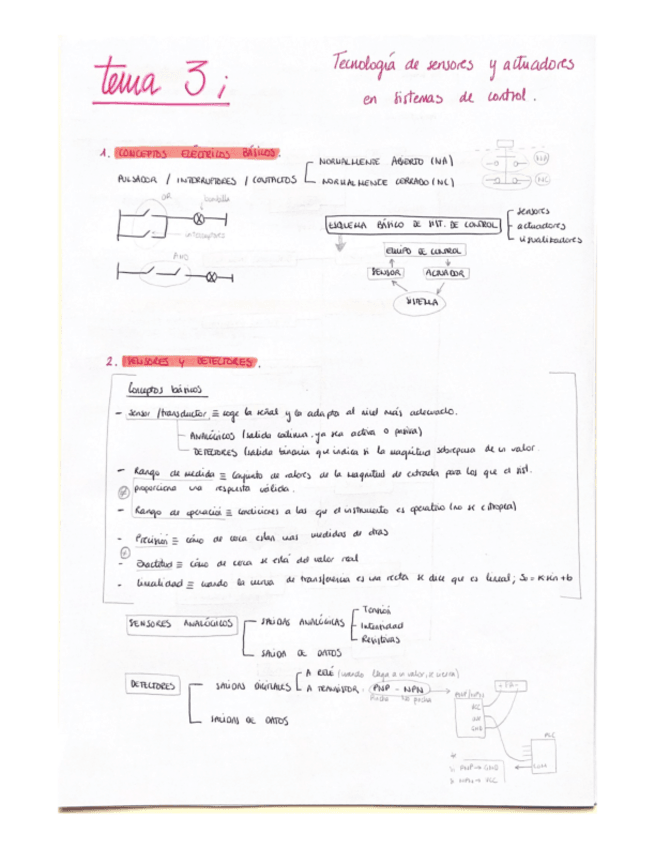 tema 3;
Tecnología de sensores y actuadores
en sistemas de control.
1. CONCEPTOS ELÉCTRICOS BÁSICOS.
PULSADOR / INTERRUPTORES / CONTACTOS
NORMALMENTE ABIERTO (NA)
NORMALMENTE CERRADO (NC)
NA
NC
OR
bombilla
interruptores
AND
ESQUEMA BÁSICO DE SIST. DE CONTROL
sensores
actuadores
visualizadores
EQUIPO DE CONTROL
SENSOR
ACTUADOR
SISTEMA
2. SENSORES Y DETECTORES.
Conceptos básicos
- Sensor / transductor ≡ coge la señal y la adapta al nivel más adecuado.
ANALÓGICOS (salida continua, ya sea activa o pasiva)
DETECTORES (salida binaria que indica si la magnitud sobrepasa de un valor.
- Rango de medida ≡ conjunto de valores de la magnitud de entrada para los que el sist.
proporciona una respuesta válida.
- Rango de operación ≡ condiciones a las que el instrumento es operativo (no se estropea)
- Precisión ≡ cómo de cerca están unas medidas de otras
- Exactitud ≡ cómo de cerca se está del valor real
- Linealidad ≡ cuando la curva de transferencia es una recta se dice que es lineal; So = K·sin + b
SENSORES ANALÓGICOS
SALIDAS ANALÓGICAS
Tensión
Intensidad
Resistivas
SALIDA DE DATOS
DETECTORES
SALIDAS DIGITALES
A RELÉ (cuando llega a un valor, se cierra)
A TRANSISTOR. PNP - NPN
SALIDAS DE DATOS
PNP/NPN
GND
PLC
COM
PNP → GND